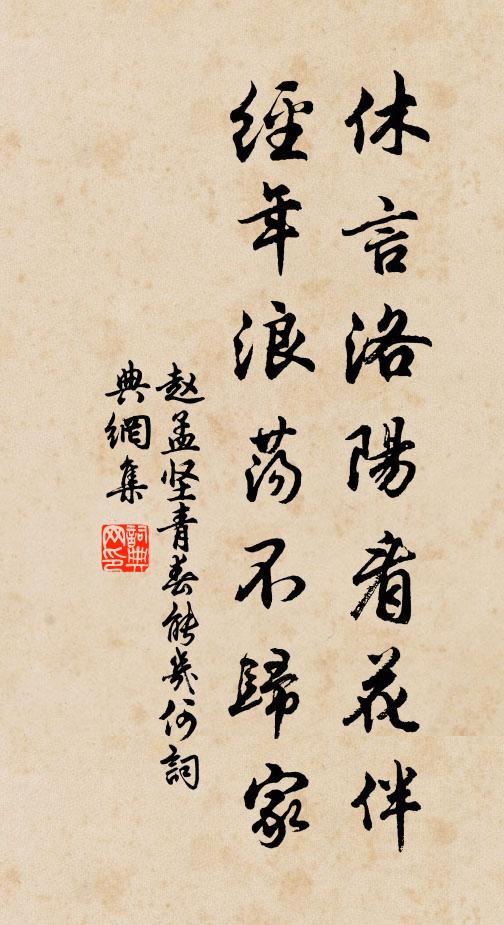 休言洛陽看花伴
經年浪蕩不歸家
赵孟坚青春能幾何詞
典網集
詞典
网印